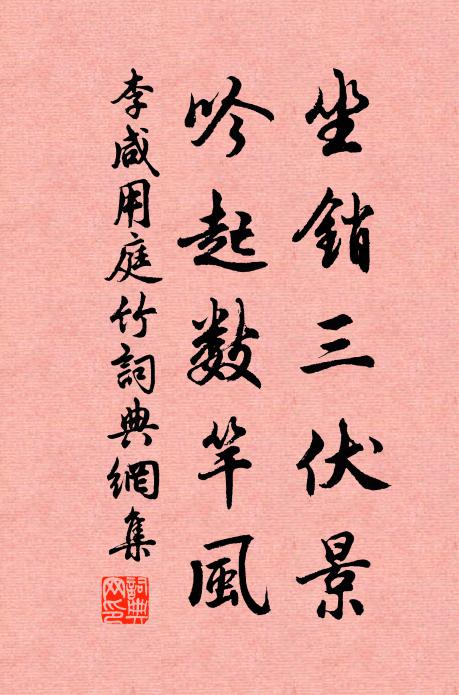 坐銷三伏景
吟起数竿風
李咸用庭竹詞典網集
詞典
网印